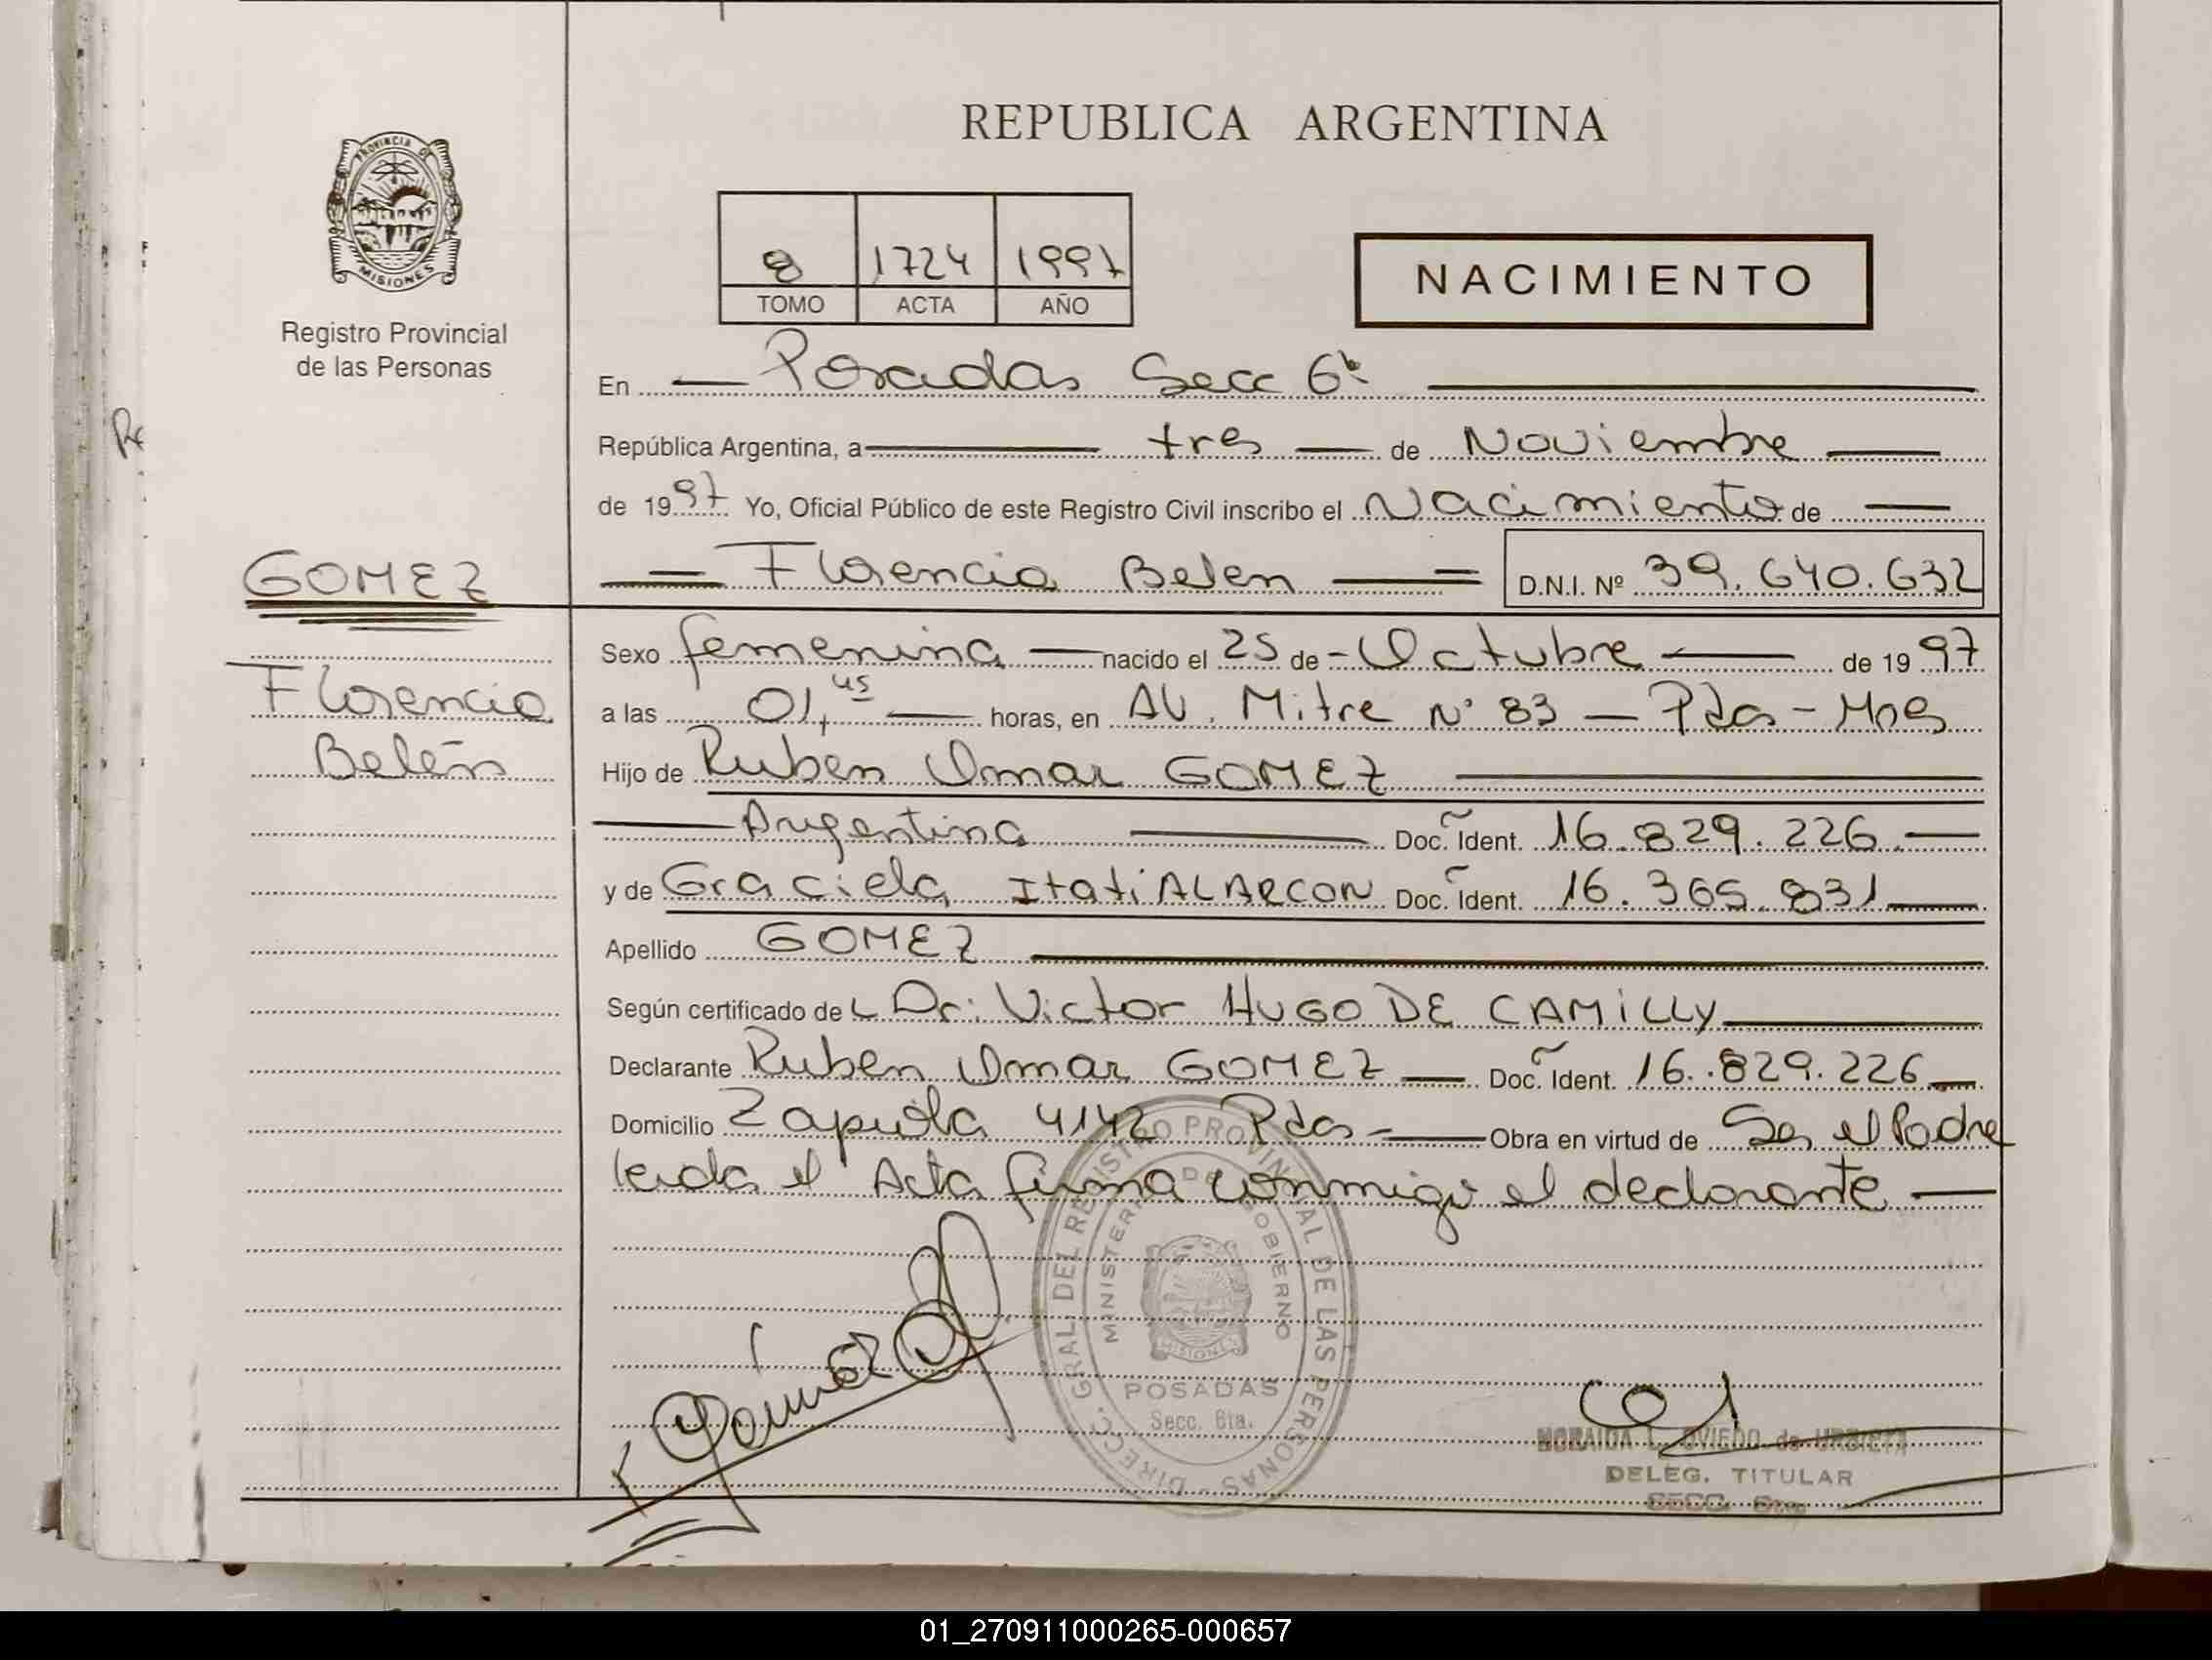 REPUBLICA ARGENTINA
PROVINCIA DE
MISIONES
Registro Provincial
de las Personas
8 1724 1997
TOMO ACTA AÑO
NACIMIENTO
En Posadas Secc 6ª
República Argentina, a tres de Noviembre
de 1997 Yo, Oficial Público de este Registro Civil inscribo el Nacimiento de
GOMEZ
Florencia Belen D.N.I. Nº 39.640.632
Florencia
Belén
Sexo femenina nacido el 25 de Octubre de 1997
a las 01,45 horas, en AV. Mitre Nº 83 - Pdas - Mnes
Hijo de Ruben Omar GOMEZ
Argentina Doc. Ident. 16.829.226
y de Graciela Itati ALARCON Doc. Ident. 16.365.831
Apellido GOMEZ
Según certificado de Dr: Victor HUGO DE CAMILLY
Declarante Ruben Omar GOMEZ Doc. Ident. 16.829.226
Domicilio Zapiola 4142 Pdas Obra en virtud de Ser el Padre
leida el Acta firma conmigo el declarante
DIRECC. GRAL DEL REGISTRO PROVINCIAL DE LAS PERSONAS
MINISTERIO DE GOBIERNO
MISIONES
POSADAS
Secc. 6ta.
MORAIDA L. OVIEDO de URBIETA
DELEG. TITULAR
SECC. 6ta
01_270911000265-000657